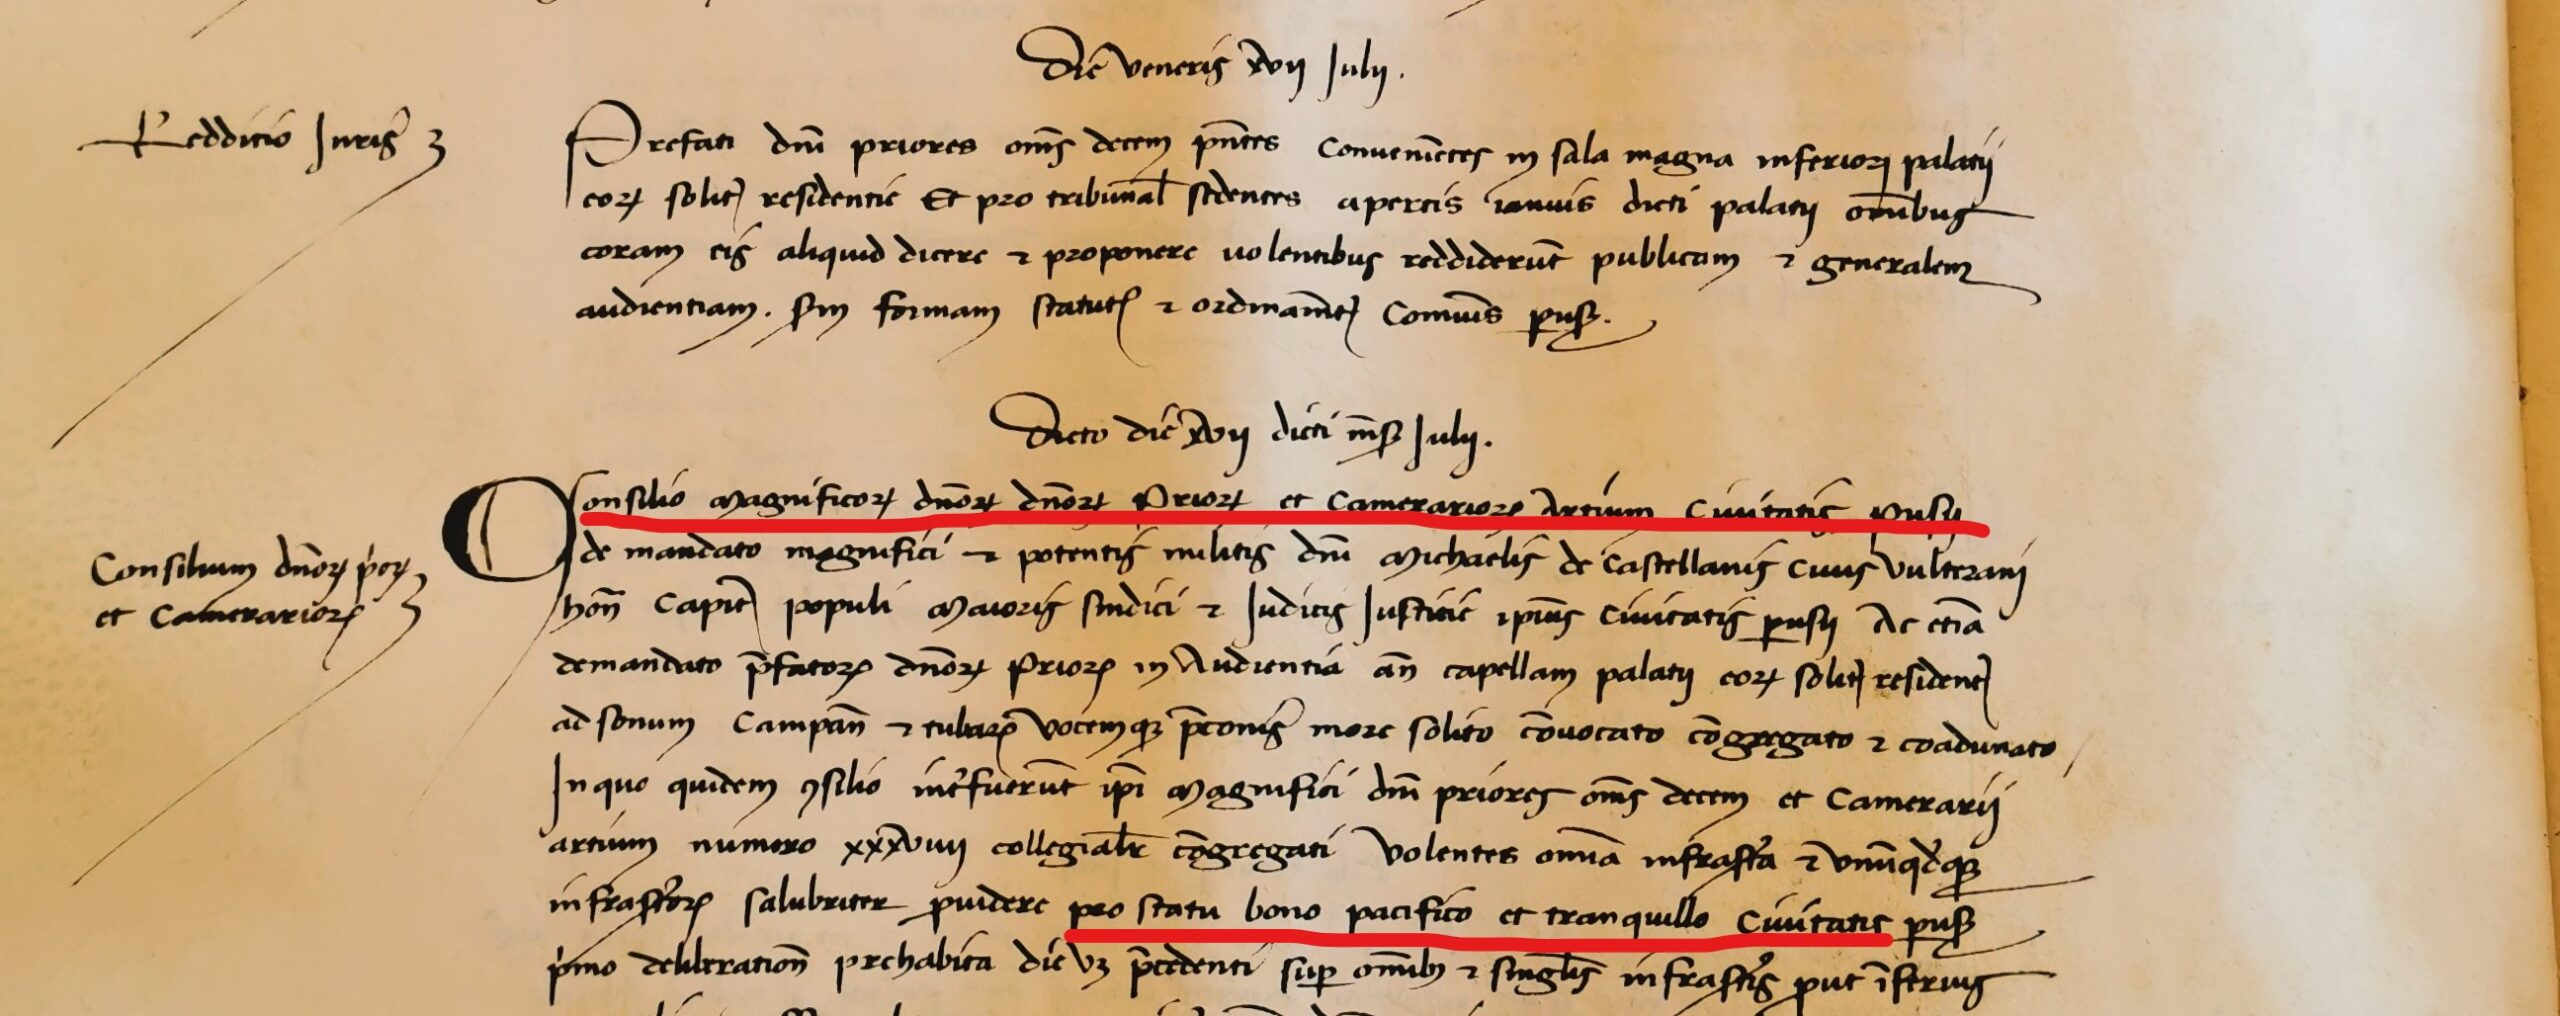 Die veneris xvij Julij.
Redditio Juris
Prefati dnī priores om̄s decem pn̄tes convenientes in sala magna inferiori palatij
eorꝝ solit residentie Et pro tribunal sedentes apertis ianuis dicti palatij om̄ibus
coram eis aliquid dicere ⁊ proponere volentibus reddiderūt publicam ⁊ generalem
audientiam. sm formam statut ⁊ ordinamēt Comunis perus.
Dicto die xvij dicti mēs Julij.
Consilio Magnificoꝝ dn̄oꝝ dn̄oꝝ Prioꝝ et Camerarioꝝ Artium Civitatis perusij
de mandato magnifici ⁊ potentis militis dnī Michaelis de Castellanis civis vulterani
Consilium dn̄oꝝ prioꝝ
et Camerarioꝝ
hon̄ Capit populi Maioris sindici ⁊ Judicis Justitie ipius Civitatis perusij Ac etiā
demandato p̄fatoꝝ dn̄oꝝ Prioꝝ in Audientia an̄ capellam palatij eoꝝ solit resident
ad sonum Campan̄ ⁊ tubaꝝ vocemqꝫ p̄conis more solito cōuocato cōgregato ⁊ coadunato
In quo quidem ꝯsilio int̄fuerūt ip̄i Magnifici dnī priores om̄s decem et Camerarij
artium numero xxxviiij collegialr cōgregati volentes om̄ia infrascr̄a ⁊ vnūqd̄qꝫ
infrascr̄oꝝ salubriter ꝓuidere pro statu bono pacifico et tranquillo Civitatis perus
primo deliberation̄ prehabita die vꝫ p̄cedenti suꝑ om̄ibꝫ ⁊ singlīs infrascr̄is ꝓut īferius